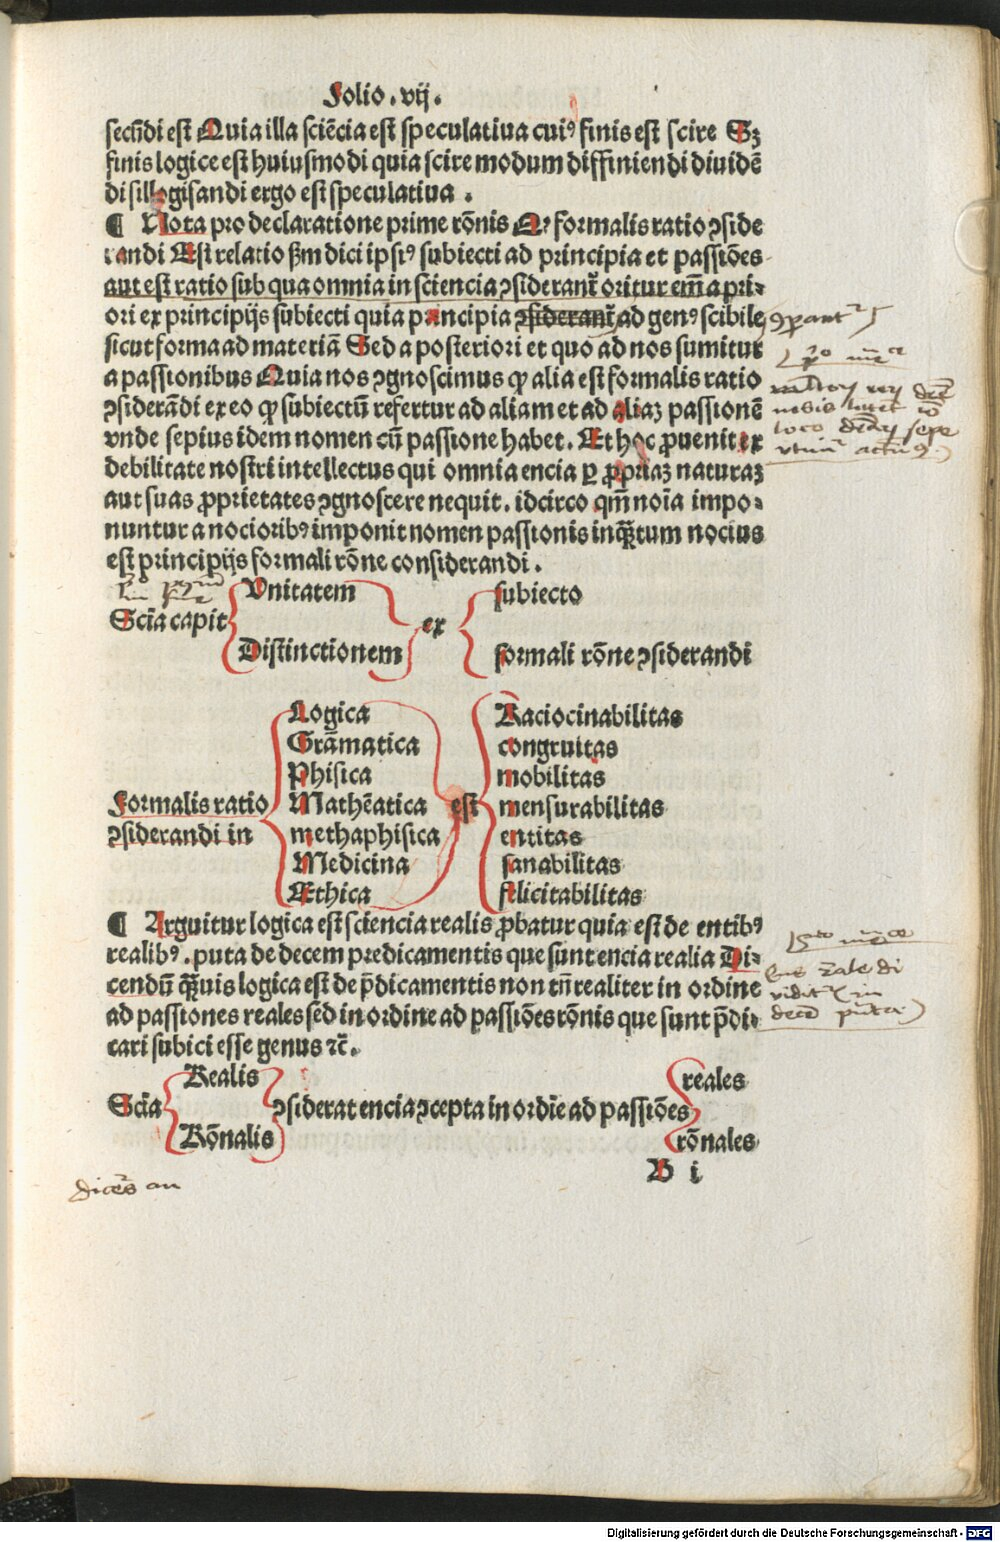 Folio .vij.
secũdi est Quia illa sciẽcia est speculatiua cuiꝰ finis est scire Sꝫ
finis logice est huiusmodi quia scire modum diffiniendi diuidẽ
di sillogisandi ergo est speculatiua .
¶ Nota pro declaratione prime rõnis Qꝙ formalis ratio ꝯside
randi Est relatio ẜm dici ipsiꝰ subiecti ad principia et passiões
aut est ratio sub qua omnia in sciencia ꝯsiderant᷑ oritur em̃ a pri⸗
ori ex principijs subiecti quia principia ꝯsiderant᷑ ad genꝰ scibile
sicut forma ad materiã Sed a posteriori et quo ad nos sumitur
a passionibus Quia nos ꝯgnoscimus ꝙ alia est formalis ratio
ꝯsiderãdi ex eo ꝙ subiectũ refertur ad aliam et ad aliaꝫ passionẽ
vnde sepius idem nomen cũ passione habet. Et hoc ꝓuenit ex
debilitate nostri intellectus qui omnia encia ꝑ ꝓpriaꝫ naturaꝫ
aut suas ꝓprietates ꝯgnoscere nequit. idcirco qm̃ noĩa impo⸗
nuntur a nocioribꝰ imponit nomen passionis inq̃ꝫtum nocius
est principijs formali rõne considerandi .
Scĩa capit
Vnitatem
Distinctionem
ex
subiecto
formali rõne ꝯsiderandi
Formalis ratio
ꝯsiderandi in
Logica
Grãmatica
Phisica
Mathẽatica
methaphisica
Medicina
Ethica
est
Raciocinabilitas
congruitas
mobilitas
mensurabilitas
entitas
sanabilitas
felicitabilitas
¶ Arguitur logica est sciencia realis ꝓbatur quia est de entibꝰ
realibꝰ. puta de decem predicamentis que sunt encia realia Di⸗
cendũ q̃ꝫuis logica est de p̃dicamentis non tñ realiter in ordine
ad passiones reales sed in ordine ad passiões rõnis que sunt p̃di⸗
cari subici esse genus ⁊c̃.
Scĩa
Realis
Rõnalis
ꝯsiderat encia ꝯcepta in ordĩe ad passiões
reales
rõnales
B i
Digitalisierung gefördert durch die Deutsche Forschungsgemeinschaft - DFG